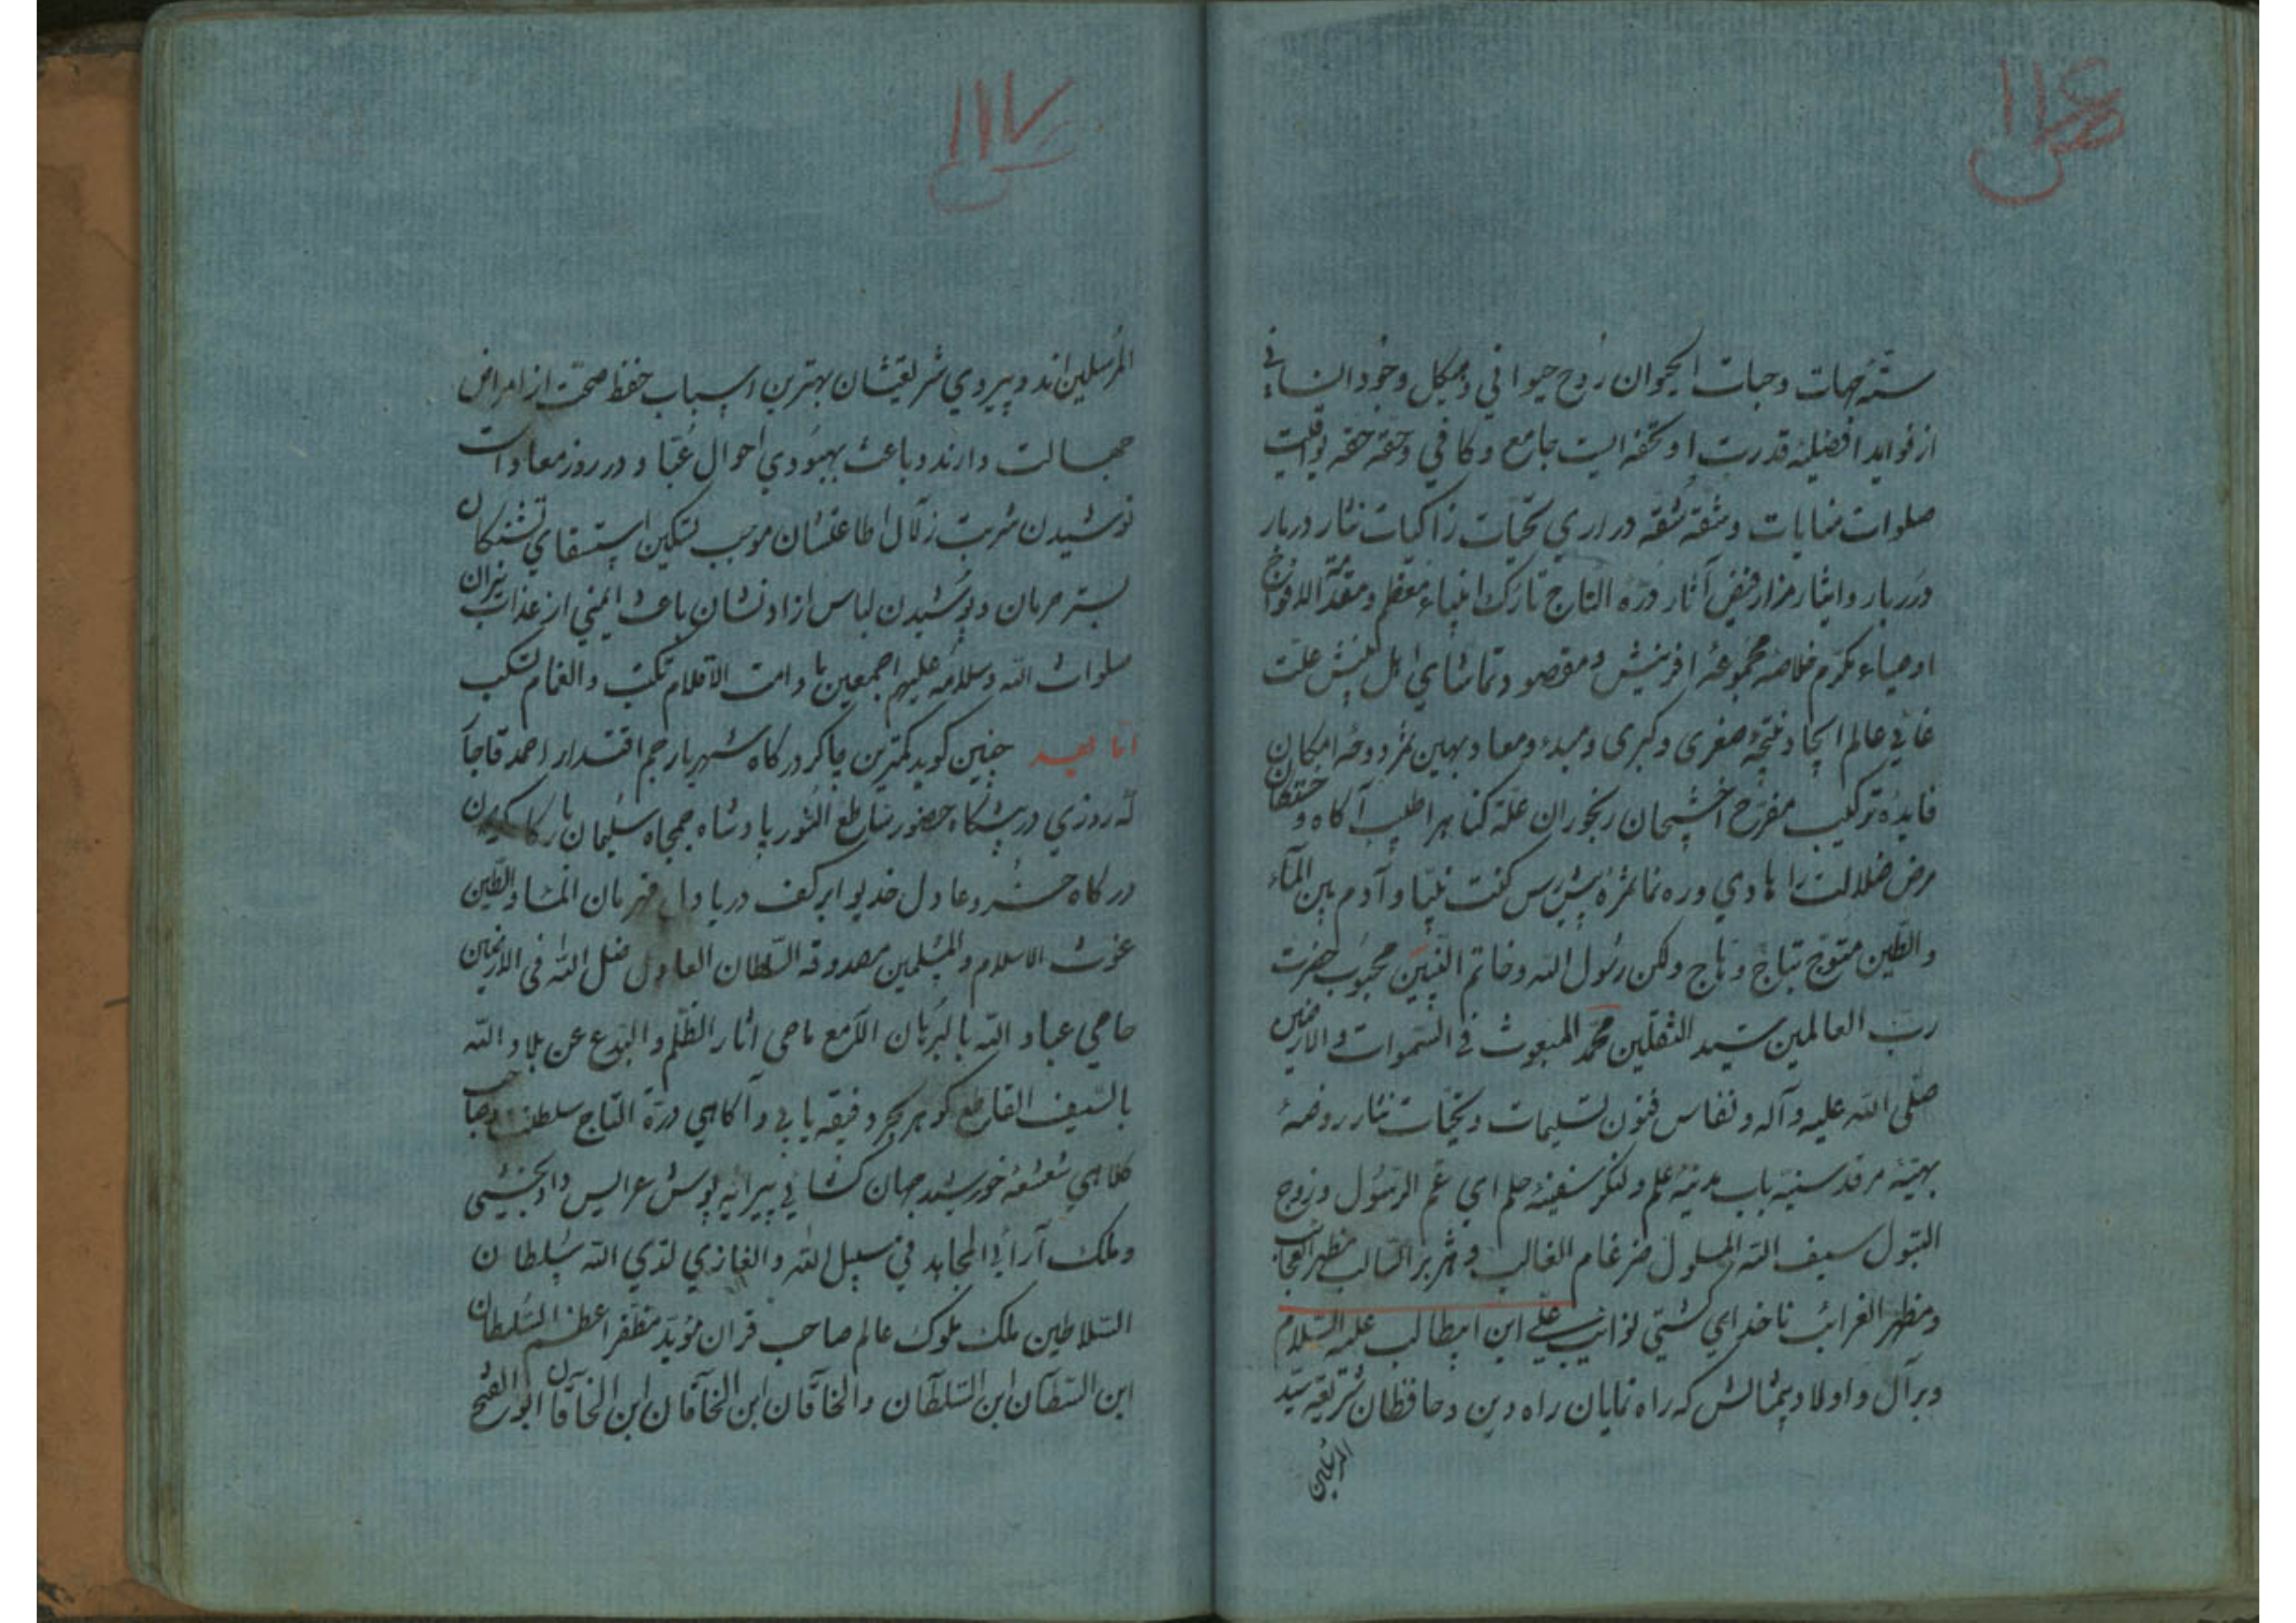 ص ۱۱۶
ستهٔ جهات و حیات الحیوان روح حیوانی و هیکل وجود انسانی
از فواید افضلیهٔ قدرت او تحفه ایست جامع و کافی و حقه حقه یواقیت
صلوات نمایات و شقه شقه دراری تحیات زاکیات نثار دربار
درر بار و ایثار مزار فیض آثار درة التاج تارک انبیاء معظم و مقدمة الافواج
اوصیاء مکرم خلاصه مجموعهٔ افرینش و مقصود و تماشای اهل بینش علت
غائی عالم ایجاد نتیجهٔ صغری و کبری و مبدء و معاد بهین ثمر دوحهٔ امکان
فایدهٔ ترکیب مفرح اخشیجان رنجوران علة کناه را طبیب آکاه و خفتکان
مرض ضلالت را هادی و ره نما ثمرهٔ پیش رس کنت نبیا و آدم بین المآء
والطین متوج بتاج وهاج ولکن رسول الله و خاتم النبیین محبوب حضرت
رب العالمین سید الثقلین محمد المبعوث فی السموات والارضین
صلی الله علیه و آله و نفاس فنون تسلیمات و تحیات نثار روضهٔ
بهیهٔ مرقد سنیه باب مدینهٔ علم و لنکر سفینهٔ حلم ابن عم الرسول و زوج
البتول سیف الله المسلول ضرغام الغالب و هژبر السالب مظهر العجایب
و مظهر الغرائب ناخدای کشتی نوائب علی ابن ابیطالب علیه السلام
و بر آل و اولاد بیمثالش که راه نمایان راه دین و حافظان شریعة سید
المرسلین
ص ۱۱۷
المرسلین اند و پیروی شریعتشان بهترین اسباب حفظ صحت از امراض
جهالت دارند و باعث بهبودی احوال عقبا و در روز معاد است
نوشیدن شربت زلال اطاعتشان موجب تسکین استسقای تشنکان
بستر حرمان و پوشیدن لباس ارادتشان باعث ایمنی از عذاب نیران
صلوات الله و سلامه علیهم اجمعین مادامت الاقلام تکتب والغمام تسکب
اما بعد چنین کوید کمترین چاکر درکاه شهریار جم اقتدار احمد قاجار
که روزی در پیشکاه حضور ساطع النور پادشاه جمجاه سلیمان بارکاه
درکاه خسرو عادل خدیو ابر کف دریا دل قهرمان الماء والطین
غوث الاسلام والمسلمین مصدوقه السلطان العادل ظل الله فی الارضین
حامی عباد الله بالبرهان اللامع ماحی اثار الظلم والبدع عن بلاد الله
بالسیف القاطع کوهر بحر دقیقه یابی و آکاهی درة التاج سلطنت و صاحب
کلاهی شعشعهٔ خورشید جهان کشائی پیرایه پوش عرایس داد بخشی
و ملک آرائی المجاهد فی سبیل الله والغازی لدی الله سلطان
السلاطین ملک ملوک عالم صاحب قران مؤید مظفر اعظم السلطان
ابن السلطان ابن السلطان والخاقان ابن الخاقان ابن الخاقان ابو الفتح